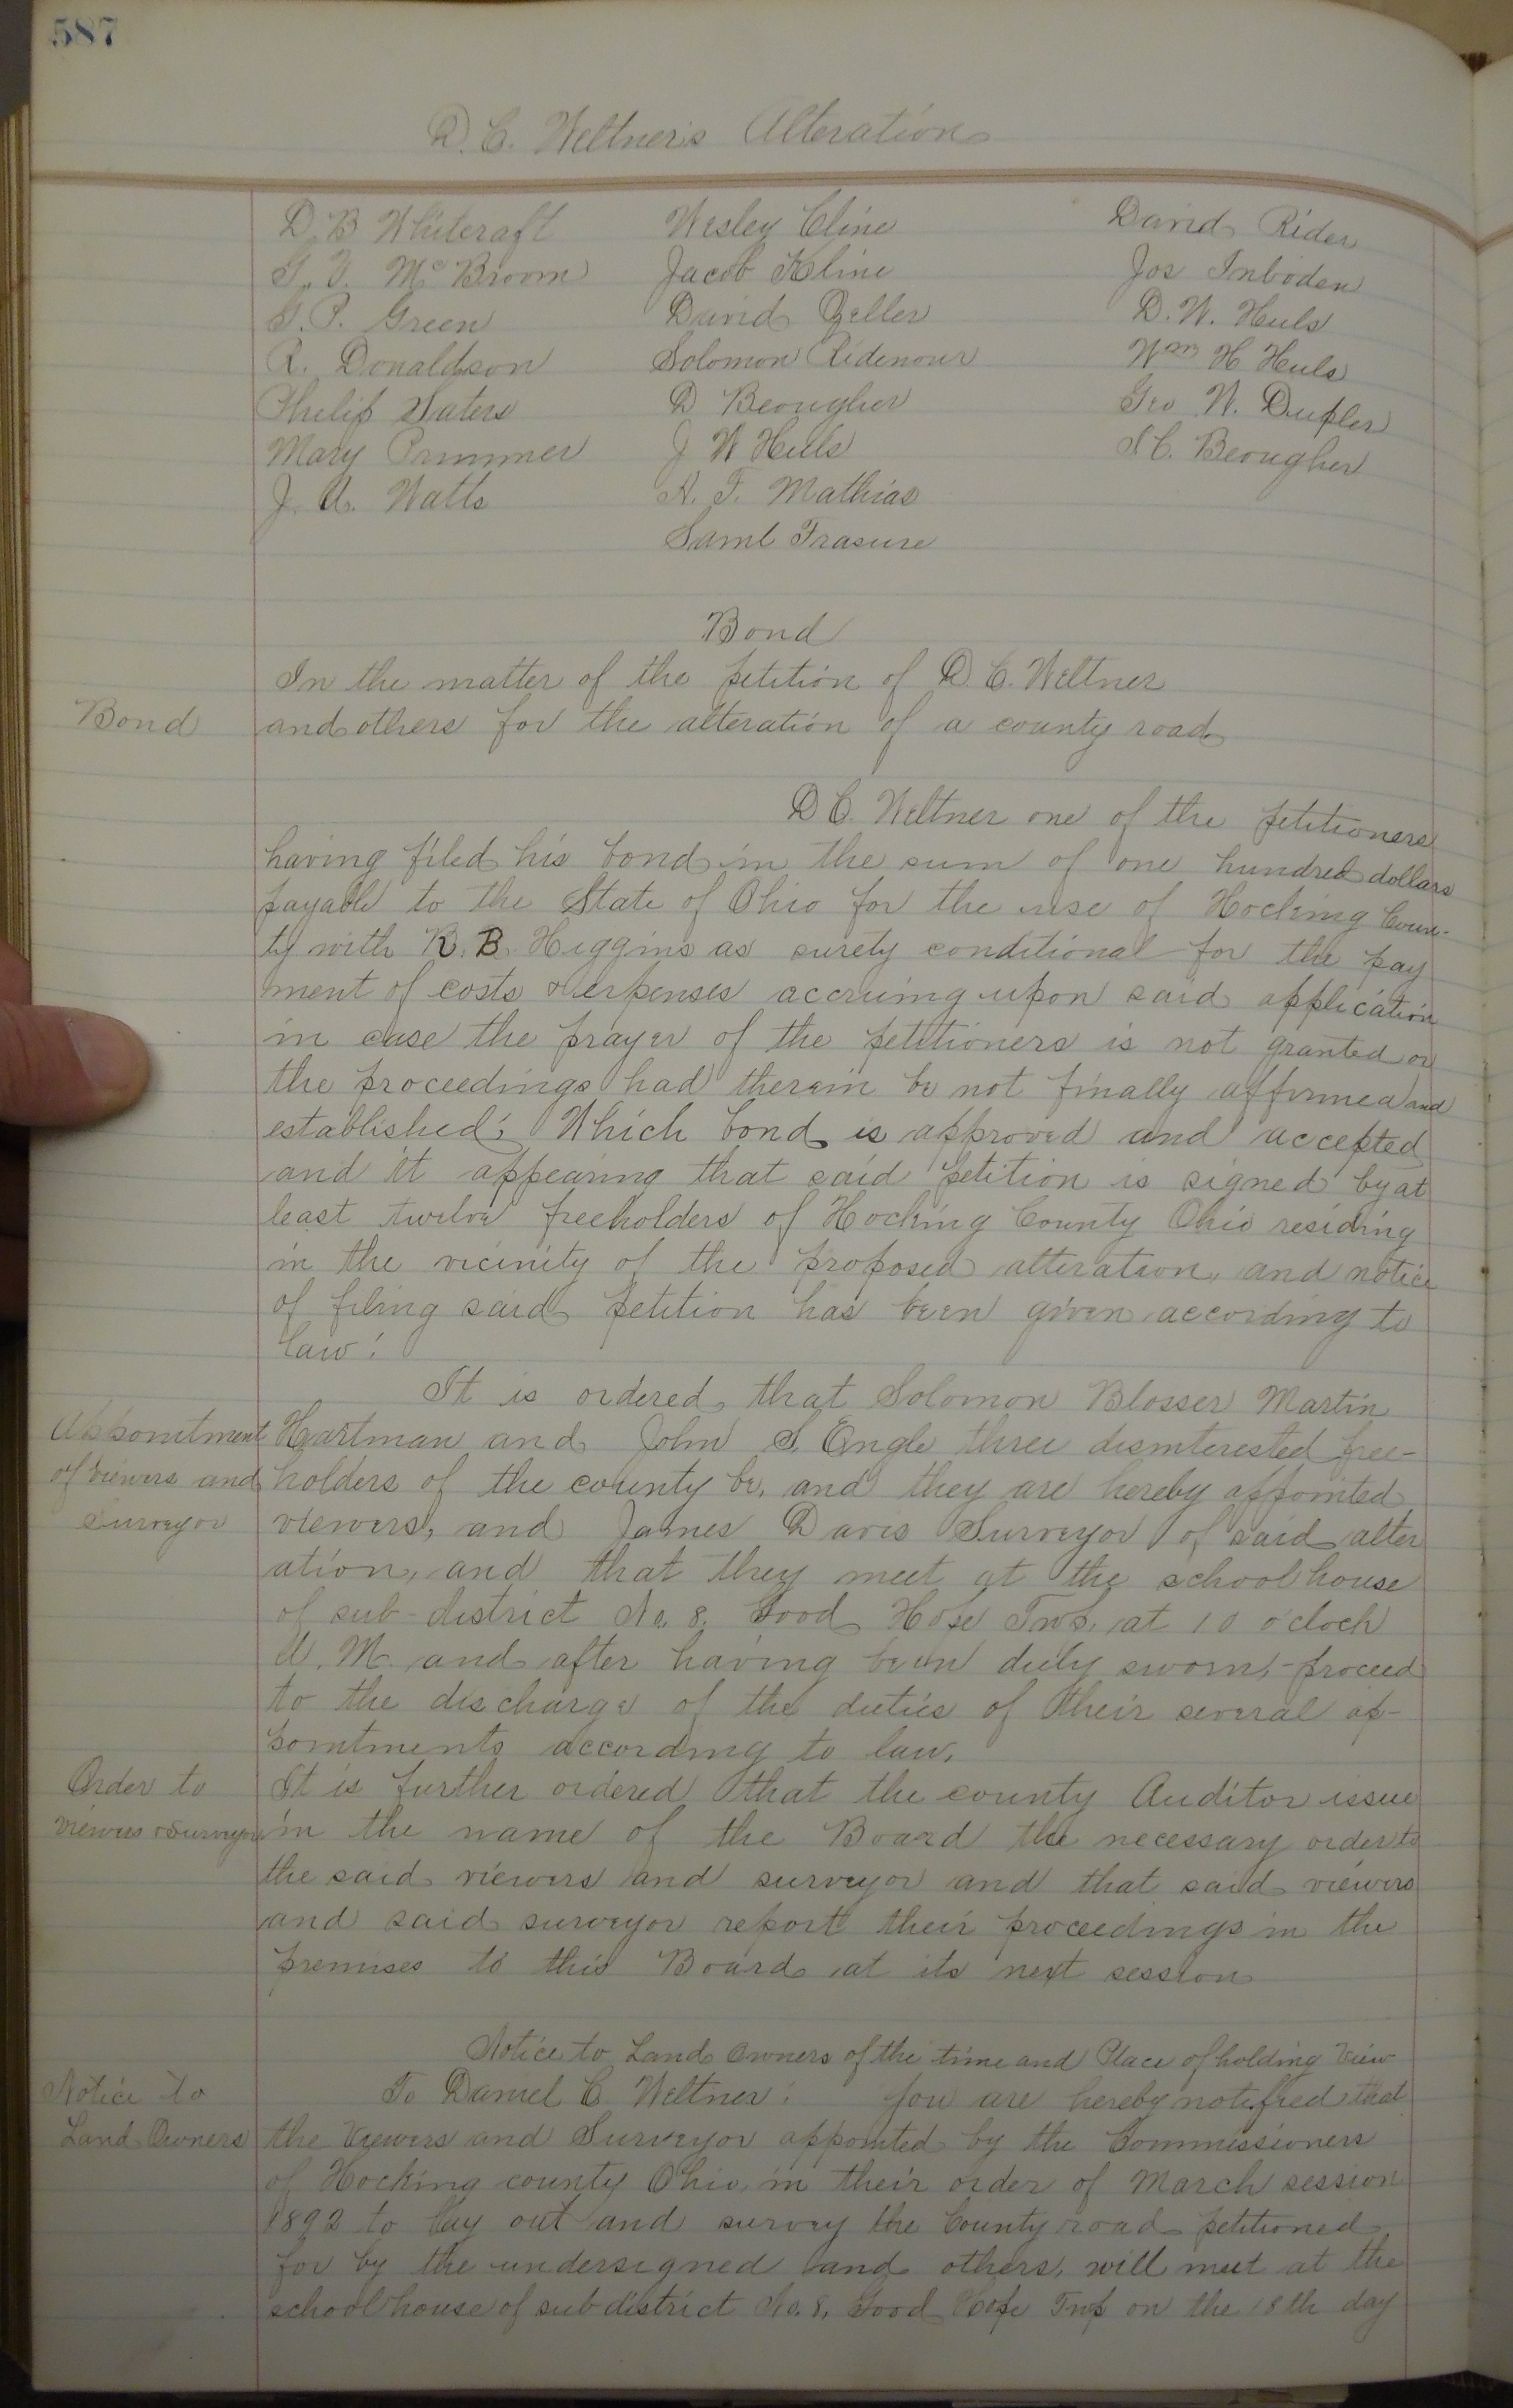 587
D. C. Weltner's Alteration
D. B Whitcraft Wesley Cline David Rider
T. V. McBroom Jacob Kline Jos Inboden
G. P. Green David Zeller D. W. Huls
R. Donaldson Solomon Ridenour Wm H Huls
Philip Waters D Beougher Geo W. Dupler
Mary Primmer J W Huls S C. Beougher
J. A. Watts A. F. Mathias
Saml Frasure
Bond
In the matter of the petition of D. C. Weltner
Bond
and others for the alteration of a county road
D C. Weltner one of the petitioners
having filed his bond in the sum of one hundred dollars
payable to the State of Ohio for the use of Hocking Coun-
ty with R. B. Higgins as surety conditional for the pay
ment of costs & expenses accruing upon said application
in case the prayer of the petitioners is not granted or
the proceedings had therein be not finally affirmed and
established; Which bond is approved and accepted
and it appearing that said petition is signed by at
least twelve freeholders of Hocking County Ohio residing
in the vicinity of the proposed alteration, and notice
of filing said petition has been given according to
law;
It is ordered that Solomon Blosser Martin
Appointment
of viewers and
Surveyor
Hartman and John S. Engle three disinterested free-
holders of the county be, and they are hereby appointed
viewers, and James Davis Surveyor of said alter
ation, and that they meet at the school house
of sub-district No. 8, Good Hope Twp. at 10 o'clock
A. M. and after having been duly sworn, proceed
to the discharge of the duties of their several ap-
pointments according to law.
Order to
viewers & Surveyor
It is further ordered that the county Auditor issue
in the name of the Board the necessary order to
the said viewers and surveyor and that said viewers
and said surveyor report their proceedings in the
premises to this Board at its next session
Notice to Land Owners of the time and Place of holding View
Notice to
Land Owners
To Daniel C Weltner: You are hereby notified that
the Viewers and Surveyor appointed by the Commissioners
of Hocking county Ohio, in their order of March session
1892 to lay out and survey the County road petitioned
for by the undersigned and others, will meet at the
school house of sub district No. 8, Good Hope Twp on the 18th day